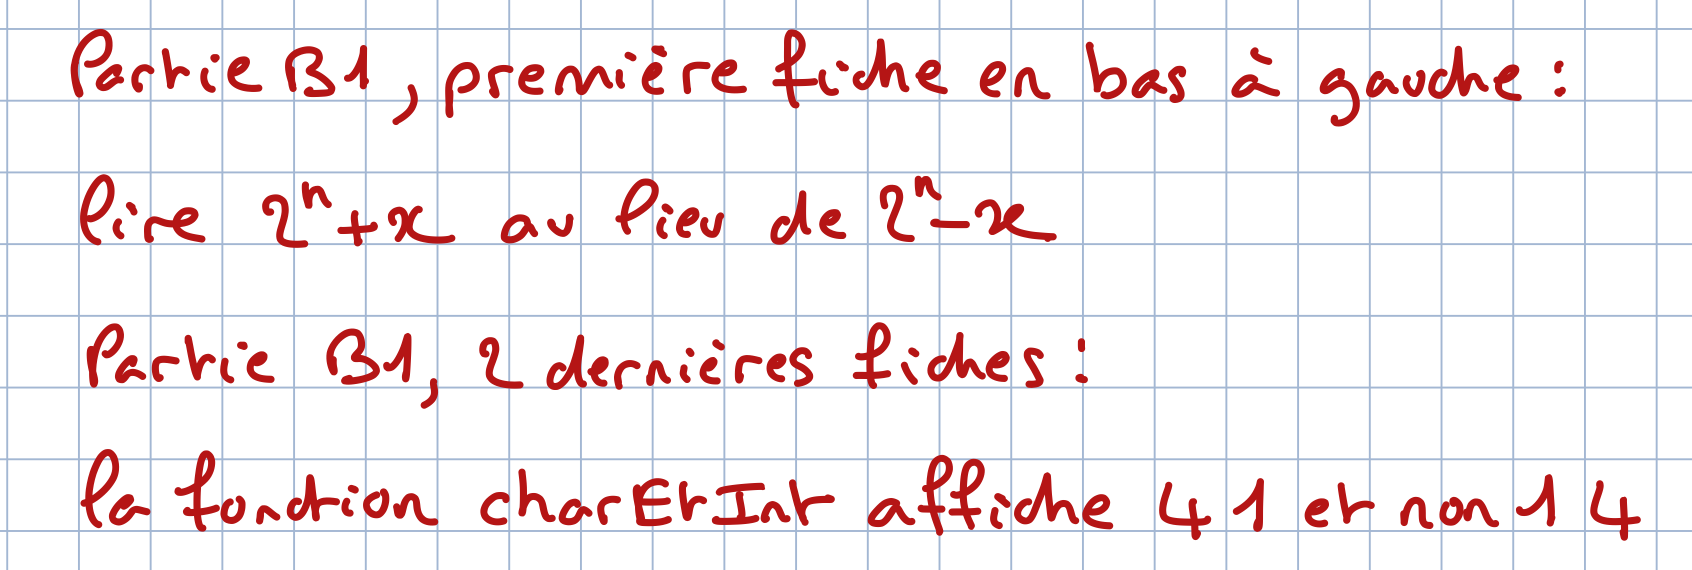 Partie B1, première fiche en bas à gauche :
lire 2ⁿ+x au lieu de 2ⁿ-x
Partie B1, 2 dernières fiches :
la fonction charEtInt affiche 41 et non 14